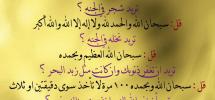 تريد شجر في الجنه ؟
قل : سبحان الله والحمد لله ولا إله إلا الله والله أكبر
تريد نخله في الجنه ؟
قل : سبحان الله العظيم وبحمده
تريد ان تغفر ذنوبك وان كانت مثل زبد البحر ؟
قل : سبحان الله وبحمده ١٠٠ مرة لا تأخذ سوى دقيقتين او ثلاث